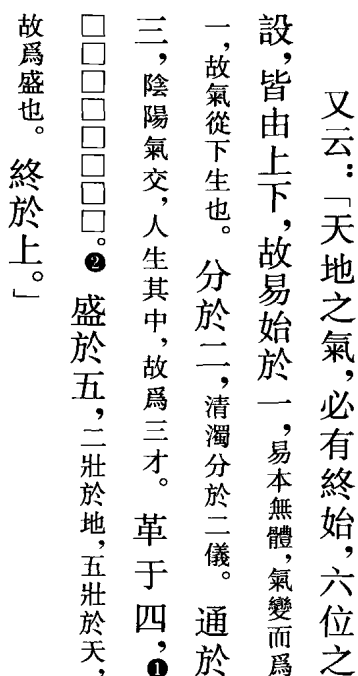 又云：「天地之氣，必有終始，六位之
設，皆由上下，故易始於一，易本無體，氣變而爲
一，故氣從下生也。分於二，清濁分於二儀。通於
三，陰陽氣交，人生其中，故爲三才。革于四，❶
□□□□□□□□。❷盛於五，二壯於地，五壯於天，
故爲盛也。終於上。」